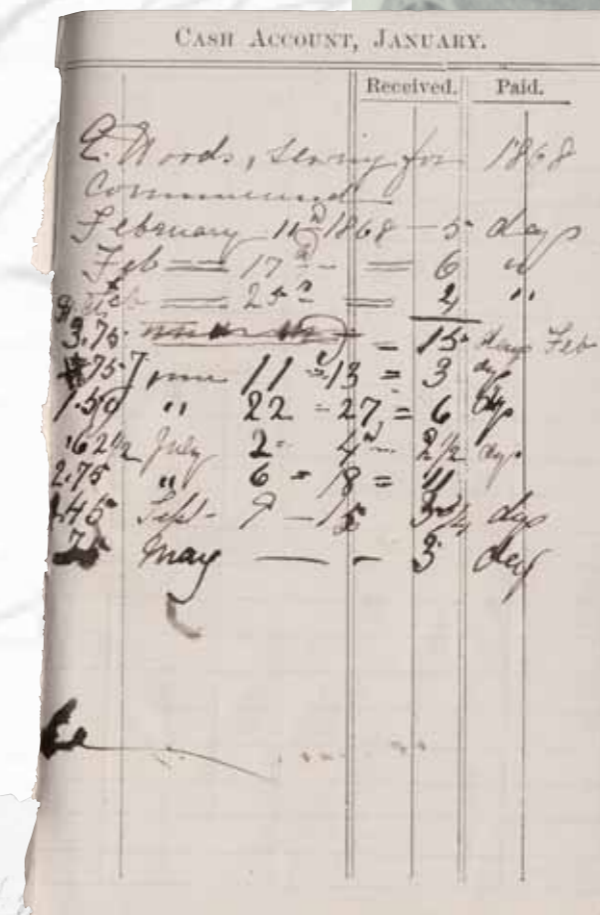 CASH ACCOUNT, JANUARY.
Received. Paid.
E. Woods, Sewing for 1868
Commenced
February 11th 1868 — 5 days
Feb = 17 = 6 "
Feb = 25 = 4 "
3.75 = 15 days Feb
.75 June 11 = 13 = 3 dys
1.50 " 22 - 27 = 6 dys
.62 1/2 July 2 - 4 - 2 1/2 dys
2.75 " 6 = 18 = 11
Sept - 9 — 15 3 3/4 dys
75 May — - 3 day